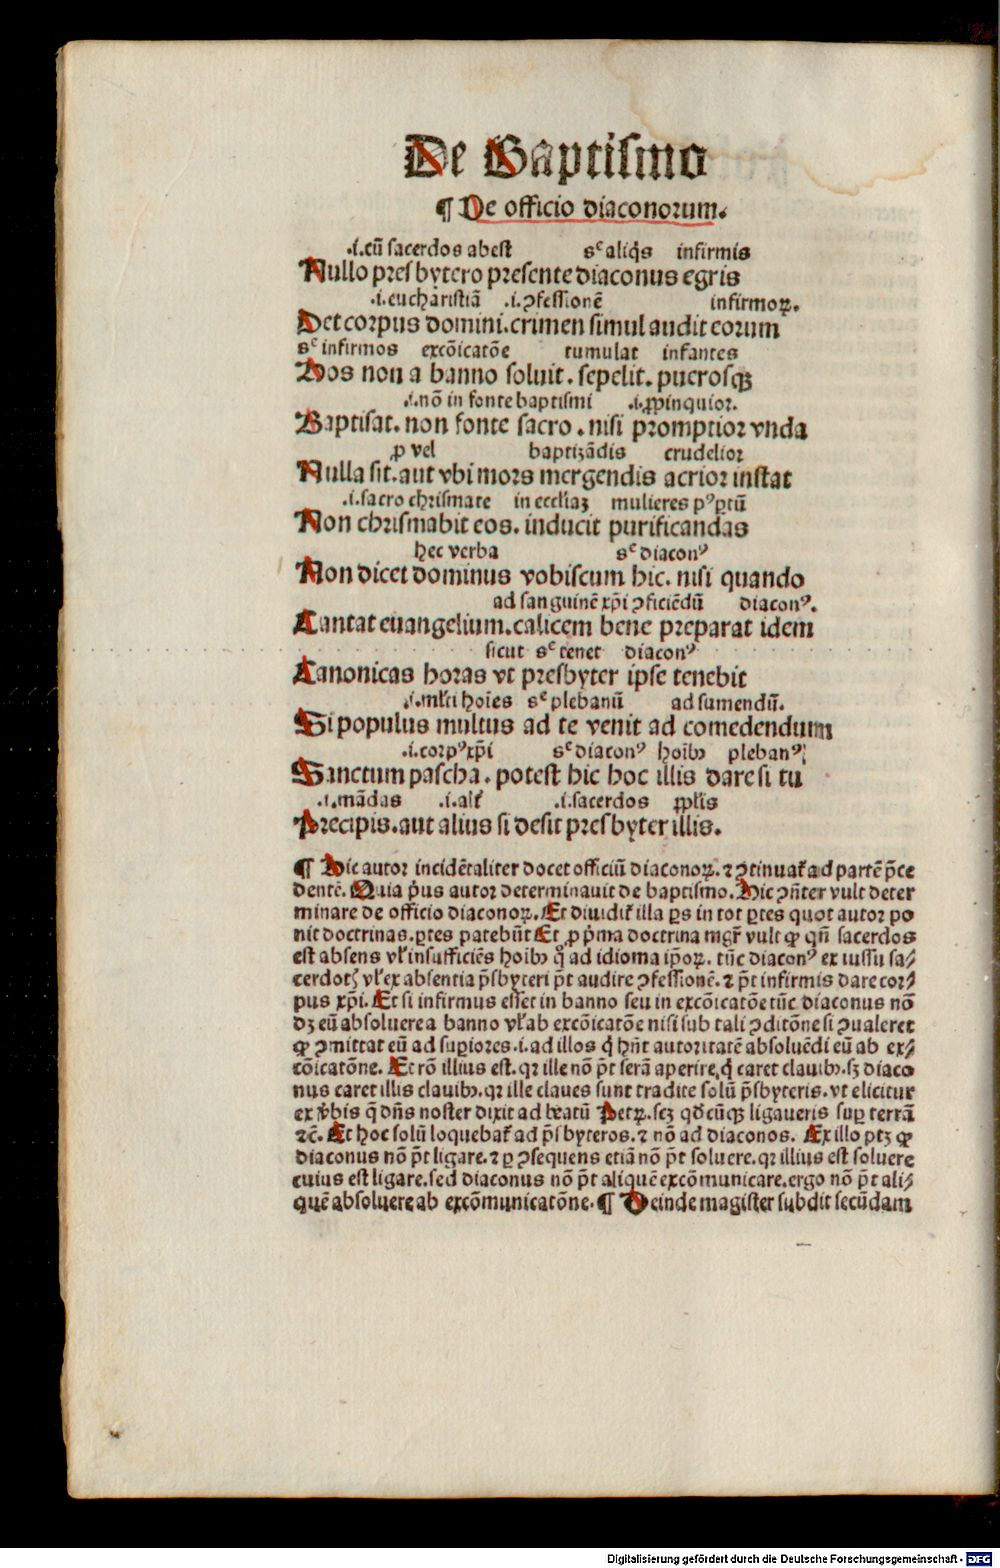 De Baptismo
¶ De officio diaconorum.
.i.cū sacerdos abest sᶜ aliq̇s infirmis
Nullo presbytero presente diaconus egris
.i.eucharistiā .i.ꝯfessionē infirmoꝝ.
Det corpus domini.crimen simul audit eorum
sᶜ infirmos excōicatōe tumulat infantes
Hos non a banno soluit. sepelit. puerosqꝫ
.i.nō in fonte baptismi .i.ꝓpinquior.
Baptisat. non fonte sacro. nisi promptior vnda
ꝓ vel baptizādis crudelior
Nulla sit.aut vbi mors mergendis acrior instat
.i.sacro chrismate in eccl'iaꝫ mulieres pꝰꝑtū
Non chrismabit eos. inducit purificandas
hec verba sᶜ diaconꝰ
Non dicet dominus vobiscum hic. nisi quando
ad sanguinē xp̄i ꝯficiēdū diaconꝰ.
Cantat euangelium.calicem bene preparat idem
sicut sᶜ tenet diaconꝰ
Canonicas horas vt presbyter ipse tenebit
.i.ml'ti hoīes sᶜ plebanū ad sumendū.
Si populus multus ad te venit ad comedendum
.i.corpꝰ xp̄i sᶜ diaconꝰ hoībꝰ plebanꝰ
Sanctum pascha. potest hic hoc illis dare si tu
.i.mādas .i.alt' .i.sacerdos ꝓpl'is
Precipis.aut alius si desit presbyter illis.
¶ Hic autor incidētaliter docet officiū diaconoꝝ. ⁊ ꝯtinuat' ad partē p̄ce
dentē. Quia p̄us autor determinauit de baptismo. Hic ꝯn̄ter vult deter
minare de officio diaconoꝝ. Et diuidit' illa ꝑs in tot ꝑtes quot autor po
nit doctrinas.ꝑtes patebūt Et ꝓ p̄ma doctrina mgr̄ vult ꝙ qn̄ sacerdos
est absens vl' insufficiēs hoībꝰ q̊ ad idioma ip̄oꝝ. tūc diaconꝰ ex iussu sa⸗
cerdotꝭ vl' ex absentia p̄sbyteri p̄t audire ꝯfessionē. ⁊ p̄t infirmis dare cor⸗
pus xp̄i. Et si infirmus esset in banno seu in excōicatōe tūc diaconus nō
dꝫ eū absoluere a banno vl' ab excōicatōe nisi sub tali ꝯditōne si ꝯualeret
ꝙ ꝯmittat eū ad suꝑiores.i.ad illos q̇ hn̄t autoritatē absoluēdi eū ab ex⸗
cōicatōne. Et rō illius est. qꝛ ille nō p̄t serā aperire, q̇ caret clauibꝰ. sꝫ diaco
nus caret illis clauibꝰ. qꝛ ille claues sunt tradite solū p̄sbyteris. vt elicitur
ex v̄bis q̄ dn̄s noster dixit ad beatū Petꝝ. scꝫ qd̄cūqꝫ ligaueris suꝑ terrā
⁊c̄. Et hoc solū loquebat' ad p̄sbyteros. ⁊ nō ad diaconos. Ex illo ptꝫ ꝙ
diaconus nō p̄t ligare. ⁊ ꝑ ꝯsequens etiā nō p̄t soluere. qꝛ illius est soluere
cuius est ligare. sed diaconus nō p̄t aliquē excōmunicare. ergo nō p̄t ali⸗
quē absoluere ab excōmunicatōne. ¶ Deinde magister subdit secūdam
Digitalisierung gefördert durch die Deutsche Forschungsgemeinschaft - DFG